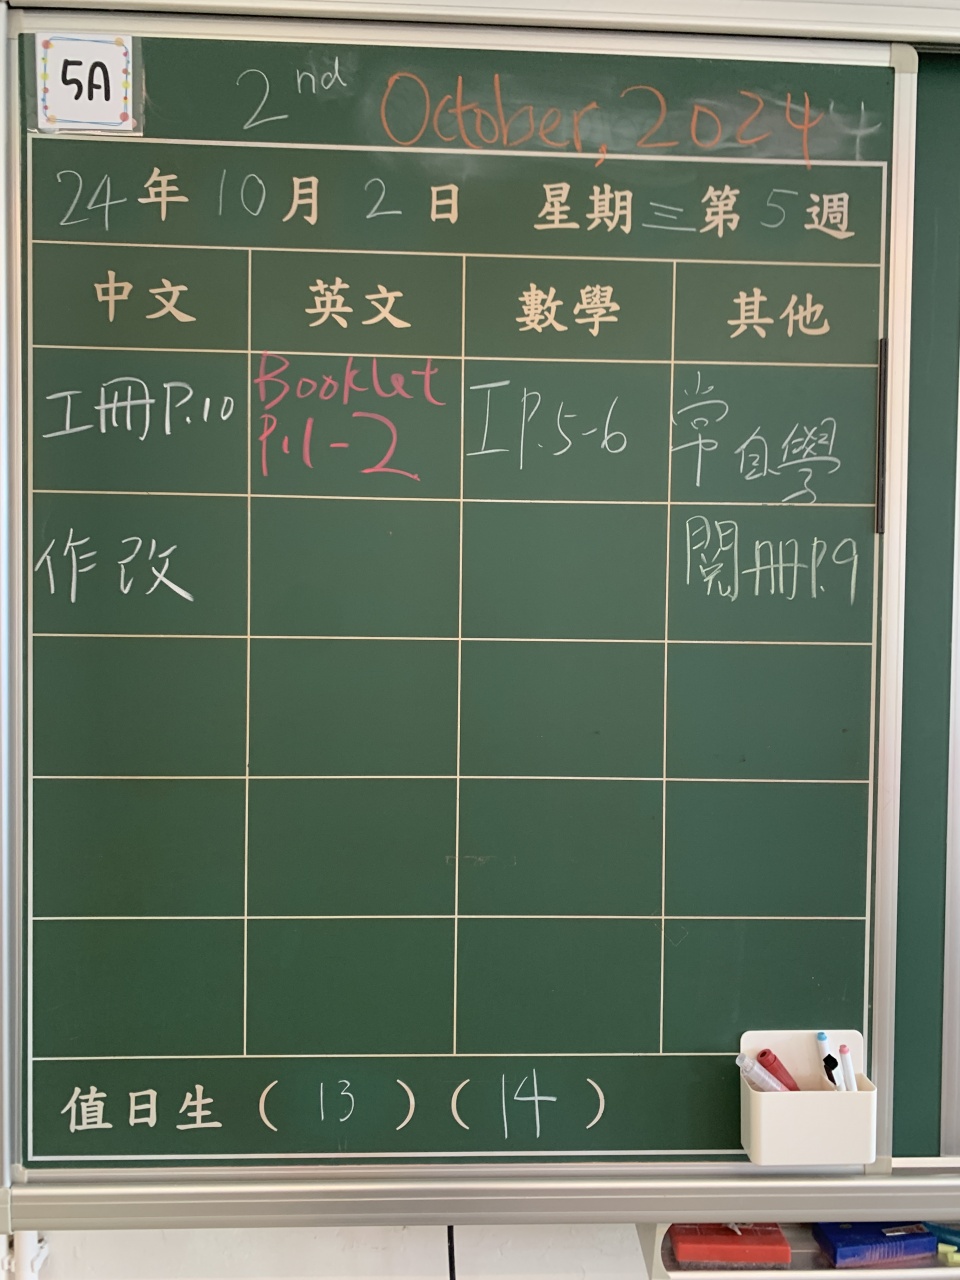 5A
2nd October, 2024 4
24年10月2日 星期三第5週
中文 英文 數學 其他
工冊P.10 Booklet P.1-2 工P.5-6 常自學
作改 閱冊P.9
值日生(13)(14)